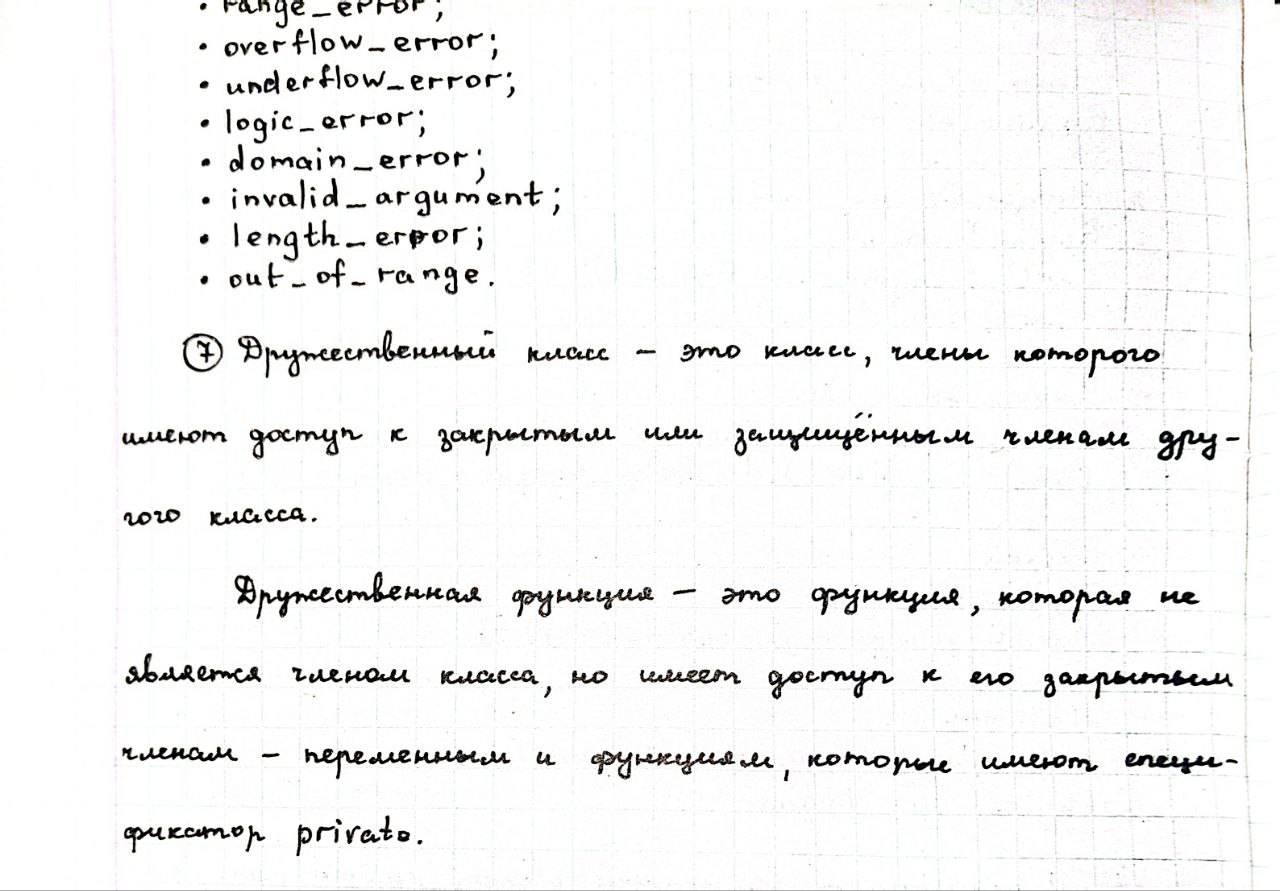 • range_error;
• overflow_error;
• underflow_error;
• logic_error;
• domain_error;
• invalid_argument;
• length_error;
• out_of_range.
⑦ Дружественный класс – это класс, члены которого
имеют доступ к закрытым или защищённым членам дру-
гого класса.
Дружественная функция – это функция, которая не
является членом класса, но имеет доступ к его закрытым
членам – переменным и функциям, которые имеют специ-
фикатор private.